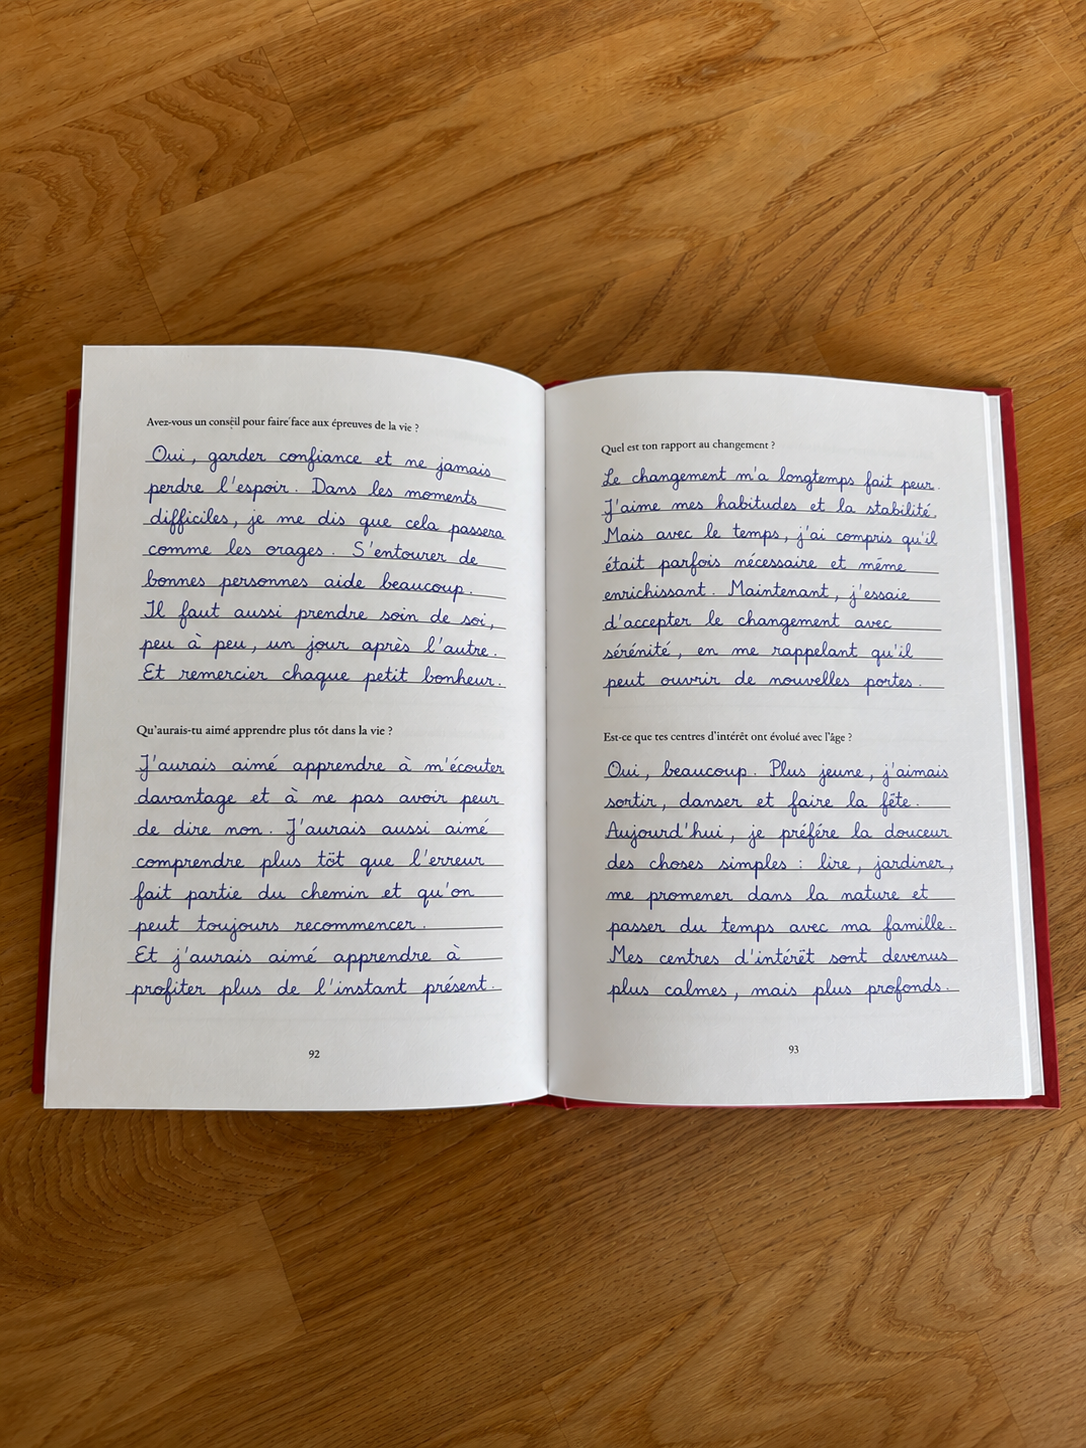 Avez-vous un conseil pour faire face aux épreuves de la vie ?
Oui, garder confiance et ne jamais
perdre l'espoir. Dans les moments
difficiles, je me dis que cela passera
comme les orages. S'entourer de
bonnes personnes aide beaucoup.
Il faut aussi prendre soin de soi,
peu à peu, un jour après l'autre.
Et remercier chaque petit bonheur.
Qu'aurais-tu aimé apprendre plus tôt dans la vie ?
J'aurais aimé apprendre à m'écouter
davantage et à ne pas avoir peur
de dire non. J'aurais aussi aimé
comprendre plus tôt que l'erreur
fait partie du chemin et qu'on
peut toujours recommencer.
Et j'aurais aimé apprendre à
profiter plus de l'instant présent.
92
Quel est ton rapport au changement ?
Le changement m'a longtemps fait peur.
J'aime mes habitudes et la stabilité.
Mais avec le temps, j'ai compris qu'il
était parfois nécessaire et même
enrichissant. Maintenant, j'essaie
d'accepter le changement avec
sérénité, en me rappelant qu'il
peut ouvrir de nouvelles portes.
Est-ce que tes centres d'intérêt ont évolué avec l'âge ?
Oui, beaucoup. Plus jeune, j'aimais
sortir, danser et faire la fête.
Aujourd'hui, je préfère la douceur
des choses simples : lire, jardiner,
me promener dans la nature et
passer du temps avec ma famille.
Mes centres d'intérêt sont devenus
plus calmes, mais plus profonds.
93